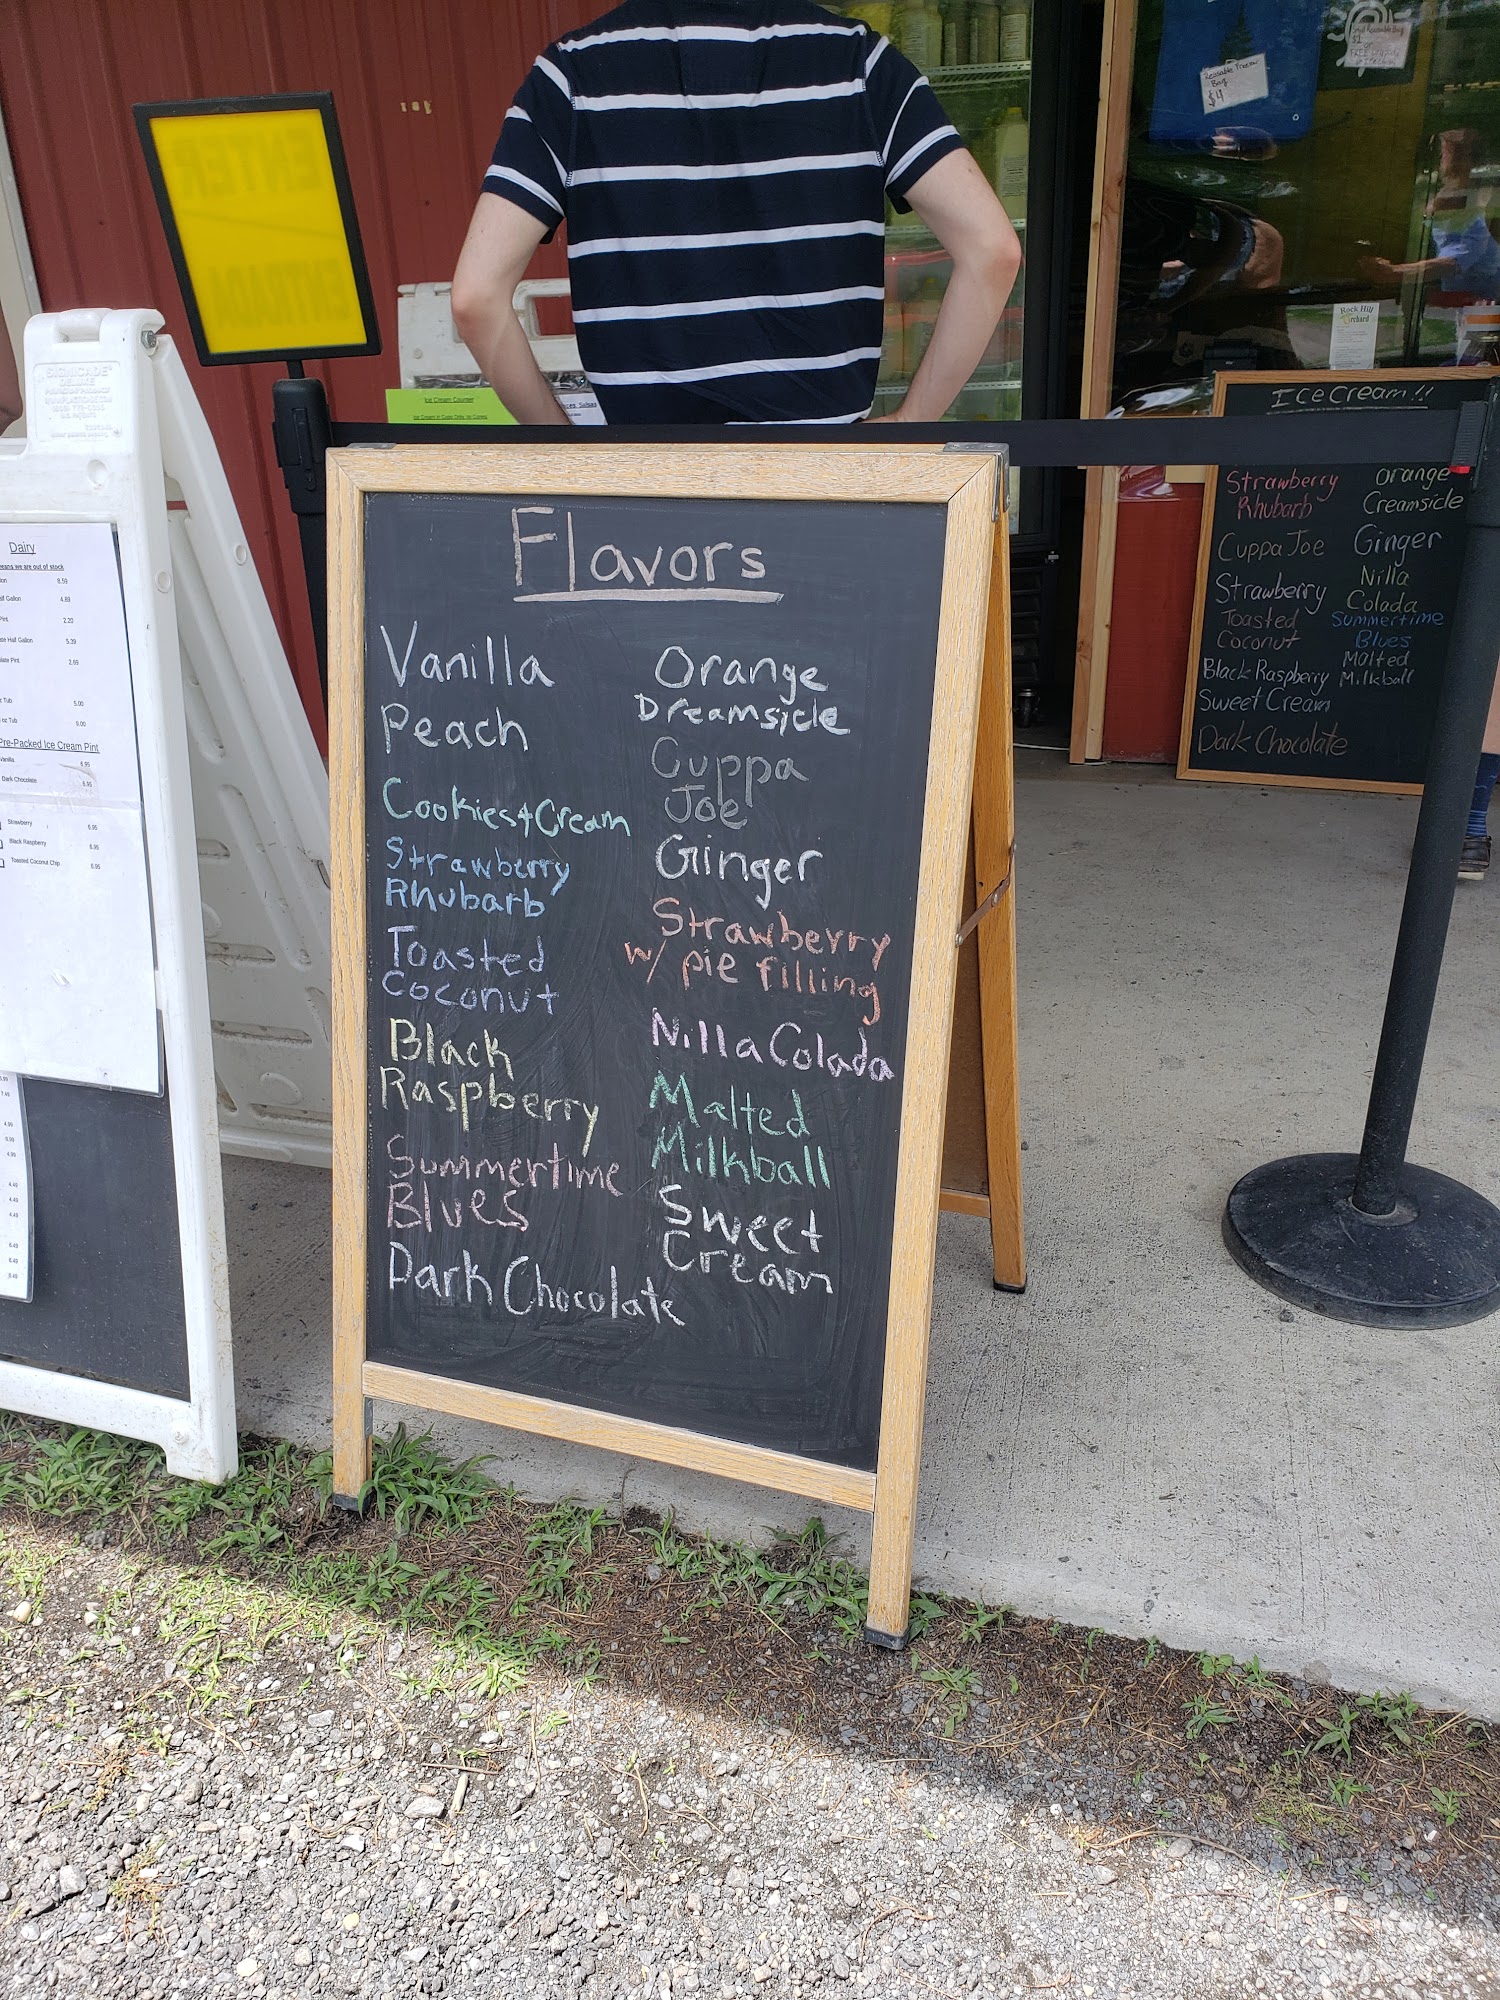 Reusable Freezer
Bag
$4
Rock Hill
Orchard
Ice Cream Counter
Flavors
Vanilla
Peach
Cookies+Cream
Strawberry
Rhubarb
Toasted
Coconut
Black
Raspberry
Summertime
Blues
Dark Chocolate
Orange
Dreamsicle
Cuppa
Joe
Ginger
Strawberry
w/ pie filling
Nilla Colada
Malted
Milkball
Sweet
Cream
Ice Cream!!
Strawberry
Rhubarb
Cuppa Joe
Strawberry
Toasted
Coconut
Black Raspberry
Sweet Cream
Dark Chocolate
Orange
Creamsicle
Ginger
Nilla
Colada
Summertime
Blues
Malted
Milkball
ENTER
ENTRADA
SIGNICADE
DELUXE
Dairy
means we are out of stock
8.59
Gallon 4.89
2.20
Half Gallon 5.39
Pint 2.69
Tub 5.00
oz Tub 9.00
Pre-Packed Ice Cream Pint
Vanilla 6.95
Dark Chocolate 6.95
Strawberry 6.95
Black Raspberry 6.95
Toasted Coconut Chip 6.95